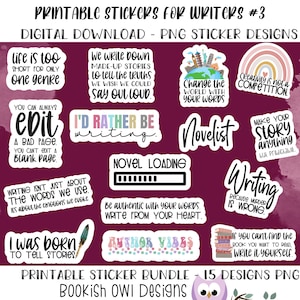 PRINTABLE STICKERS FOR WRITERS #3
DIGITAL DOWNLOAD - PNG STICKER DESIGNS
life is too
short for only
one genre
we write down
made up stories
to tell the truths
we wish we could
say out loud
Change the
world with
your words
creativity is not a
competition
YOU CAN ALWAYS
EDIT
A BAD PAGE.
YOU CAN'T EDIT A
BLANK PAGE.
I'D RATHER BE
writing
Novelist
MAKE YOUR
STORY
anything
NOVEL LOADING
WRITING ISN'T JUST ABOUT
THE WORDS WE USE.
Be authentic with your words.
Write from your heart.
Writing
IS WRONG
I was born
TO TELL STORIES
AUTHOR VIBES
If you can't find the
book you want to read,
write it yourself
PRINTABLE STICKER BUNDLE - 15 DESIGNS PNG
Bookish Owl Designs